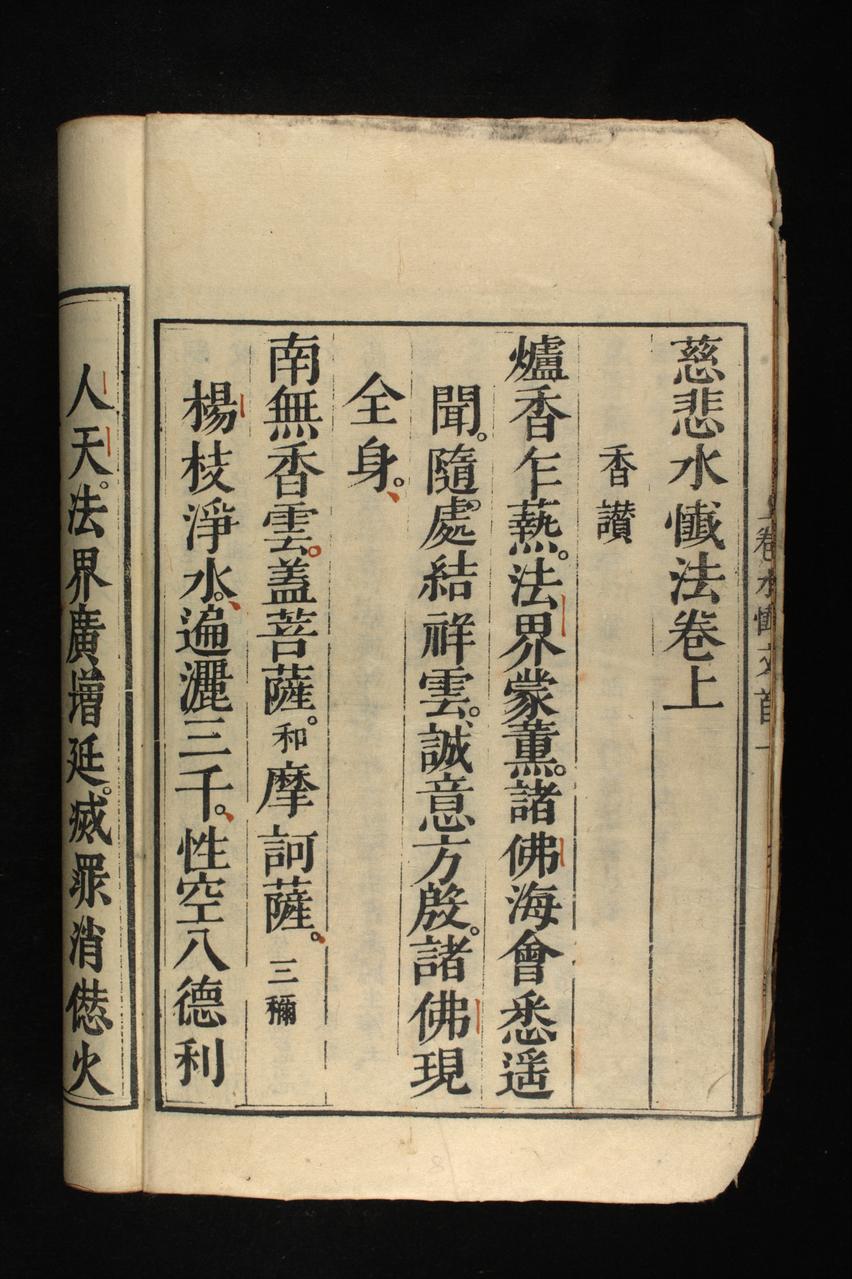 慈悲水懺法卷上
香讃
爐香乍爇。法界蒙薰。諸佛海會悉遥
聞。隨處結祥雲。誠意方殷。諸佛現
全身。
南無香雲。蓋菩薩。和摩訶薩。三稱
楊枝淨水。遍灑三千。性空八德利
人天。法界廣增延。滅罪消愆。火